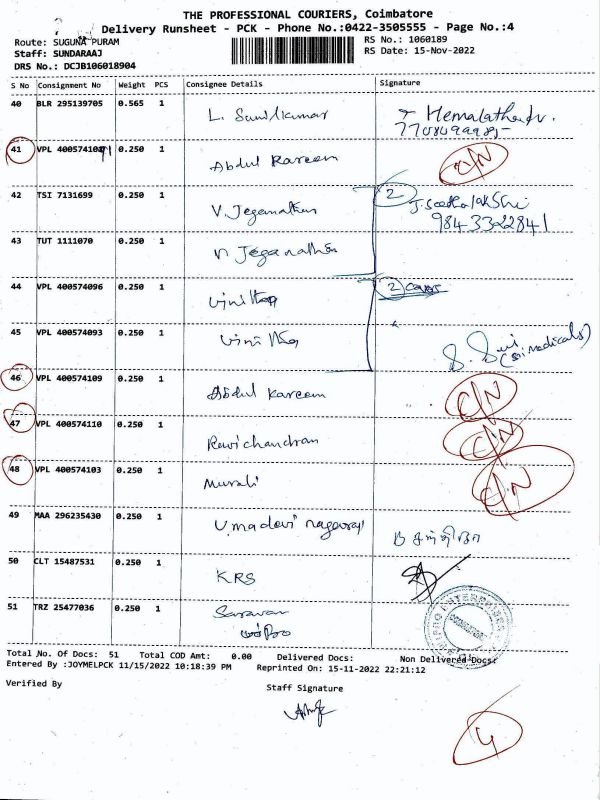 THE PROFESSIONAL COURIERS, Coimbatore
Delivery Runsheet - PCK - Phone No.:0422-3505555 - Page No.:4
Route: SUGUNA PURAM
RS No.: 1060189
Staff: SUNDARAAJ
RS Date: 15-Nov-2022
DRS No.: DCJB106018904
S No Consignment No Weight PCS Consignee Details Signature
40 BLR 295139705 0.565 1 L. Sunilkumar
T Hemalatha
41 VPL 400574107 0.250 1 Abdul Kareem C/N
42 TSI 7131699 0.250 1 V. Jeganathan 2
9843322841
43 TUT 1111070 0.250 1 V Jeganathan
44 VPL 400574096 0.250 1 2 Cover
45 VPL 400574093 0.250 1
(Sri medicals)
46 VPL 400574109 0.250 1 Abdul Kareem C/N
47 VPL 400574110 0.250 1 Ravichandran C/N
48 VPL 400574103 0.250 1 Murali C/N
49 MAA 296235430 0.250 1 Umadevi nagaraj
50 CLT 15487531 0.250 1 KRS
51 TRZ 25477036 0.250 1 Saravan
Total No. Of Docs: 51 Total COD Amt: 0.00 Delivered Docs: Non Delivered Docs:
Entered By :JOYMELPCK 11/15/2022 10:18:39 PM Reprinted On: 15-11-2022 22:21:12
Verified By
Staff Signature
4